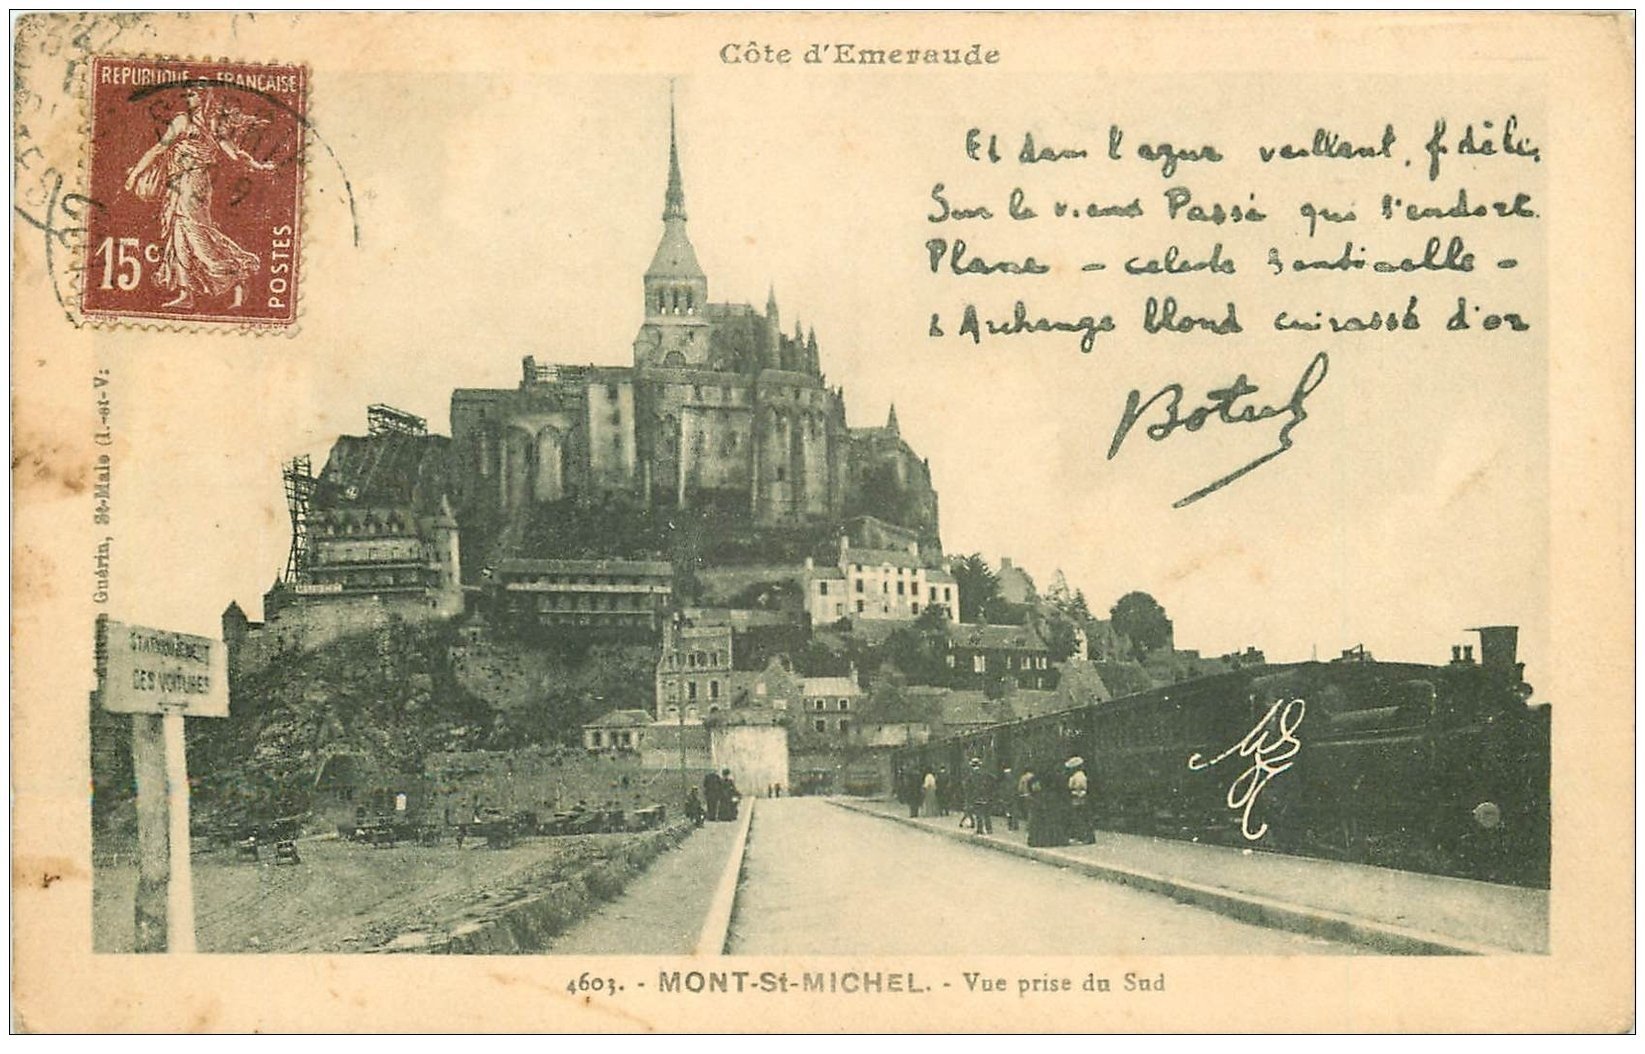 Côte d'Emeraude
REPUBLIQUE FRANÇAISE
15c
POSTES
Et dans l'azur veillant, fidèle,
Sur le vieux Passé qui s'endort
Plane - céleste sentinelle -
L'Archange blond cuirassé d'or
Botrel
Guérin, St-Malo (I.-et-V.)
STATIONNEMENT
DES VOITURES
4603. - MONT-St-MICHEL. - Vue prise du Sud